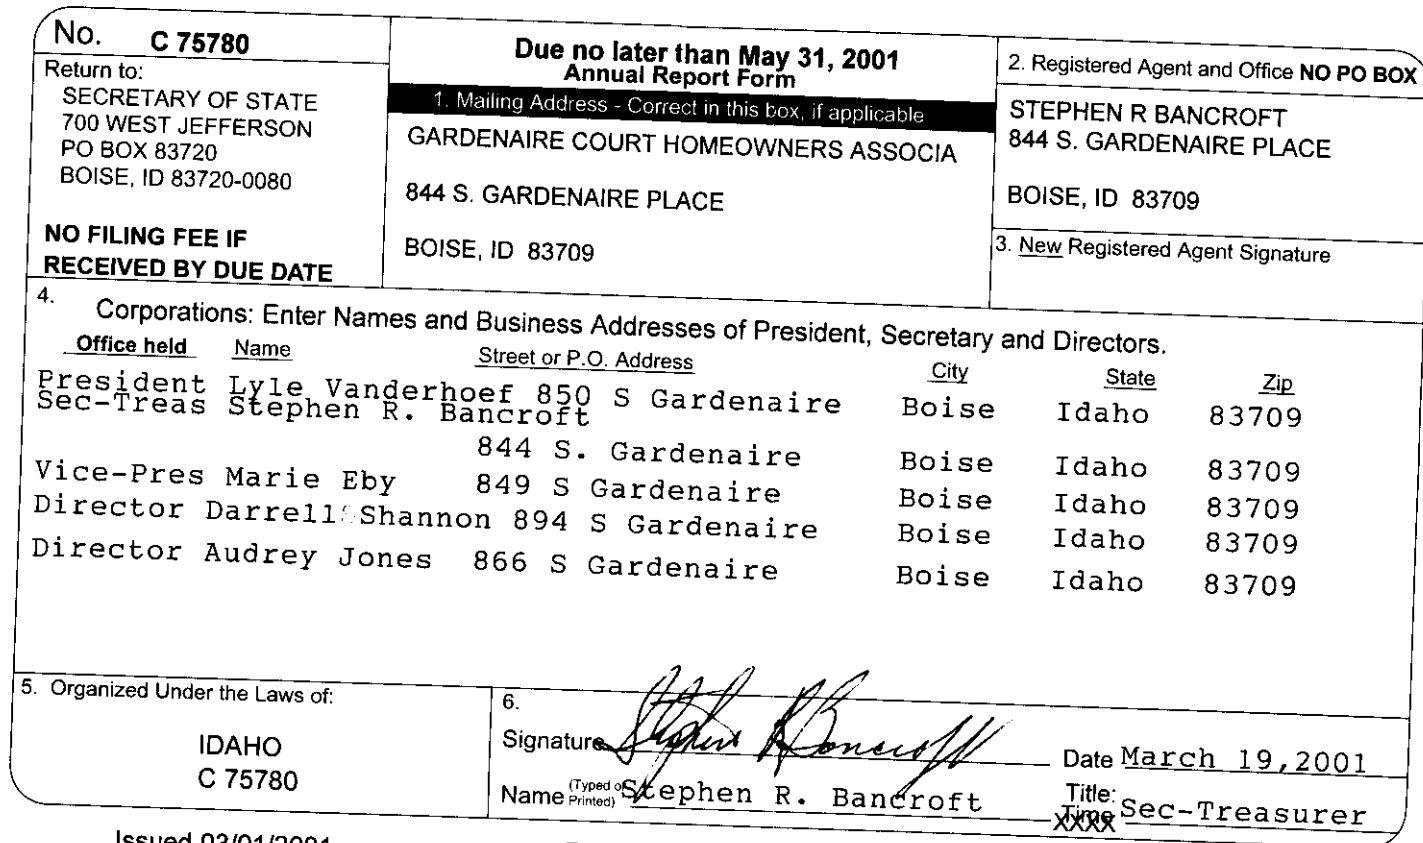 No. C 75780
Return to:
SECRETARY OF STATE
700 WEST JEFFERSON
PO BOX 83720
BOISE, ID 83720-0080
NO FILING FEE IF
RECEIVED BY DUE DATE
Due no later than May 31, 2001
Annual Report Form
1. Mailing Address - Correct in this box, if applicable
GARDENAIRE COURT HOMEOWNERS ASSOCIA
844 S. GARDENAIRE PLACE
BOISE, ID 83709
2. Registered Agent and Office NO PO BOX
STEPHEN R BANCROFT
844 S. GARDENAIRE PLACE
BOISE, ID 83709
3. New Registered Agent Signature
4. Corporations: Enter Names and Business Addresses of President, Secretary and Directors.
Office held Name Street or P.O. Address City State Zip
President Lyle Vanderhoef 850 S Gardenaire Boise Idaho 83709
Sec-Treas Stephen R. Bancroft
844 S. Gardenaire Boise Idaho 83709
Vice-Pres Marie Eby 849 S Gardenaire Boise Idaho 83709
Director Darrell Shannon 894 S Gardenaire Boise Idaho 83709
Director Audrey Jones 866 S Gardenaire Boise Idaho 83709
5. Organized Under the Laws of:
IDAHO
C 75780
6.
Signature Stephen R Bancroft Date March 19,2001
Name (Typed or Printed) Stephen R. Bancroft Title: Sec-Treasurer
Issued 03/01/2001